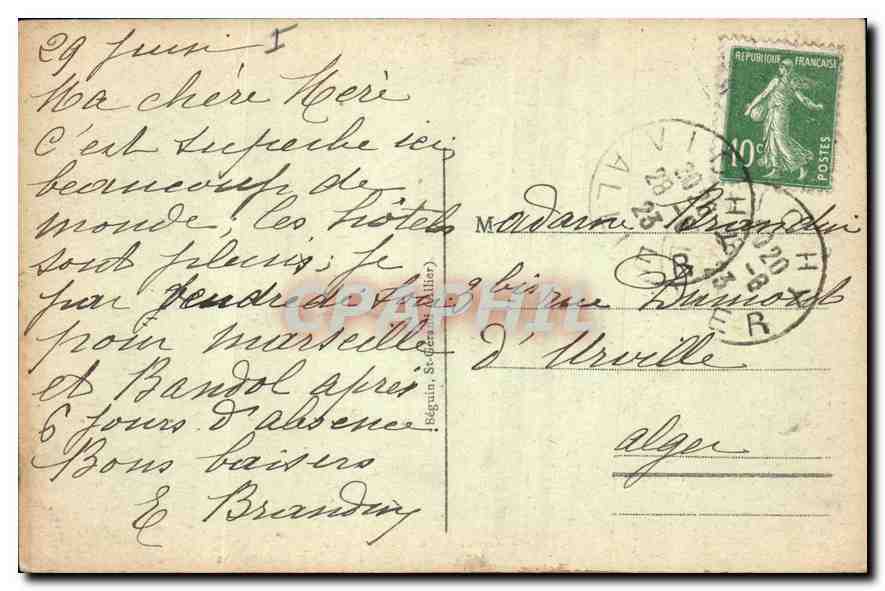 29 Juin I
Ma chère Mère
C'est superbe ici,
beaucoup de
monde, les hôtels
sont pleins, je
par Vendredi soir
pour Marseille
et Bandol après
6 jours d'absence
Bons baisers
E Brandin
Séguin, St-Gérand (Allier)
CPAPHIL
REPUBLIQUE FRANÇAISE
10c
POSTES
Madame Brandin
9 bis rue Dumont
d'Urville
alger
R